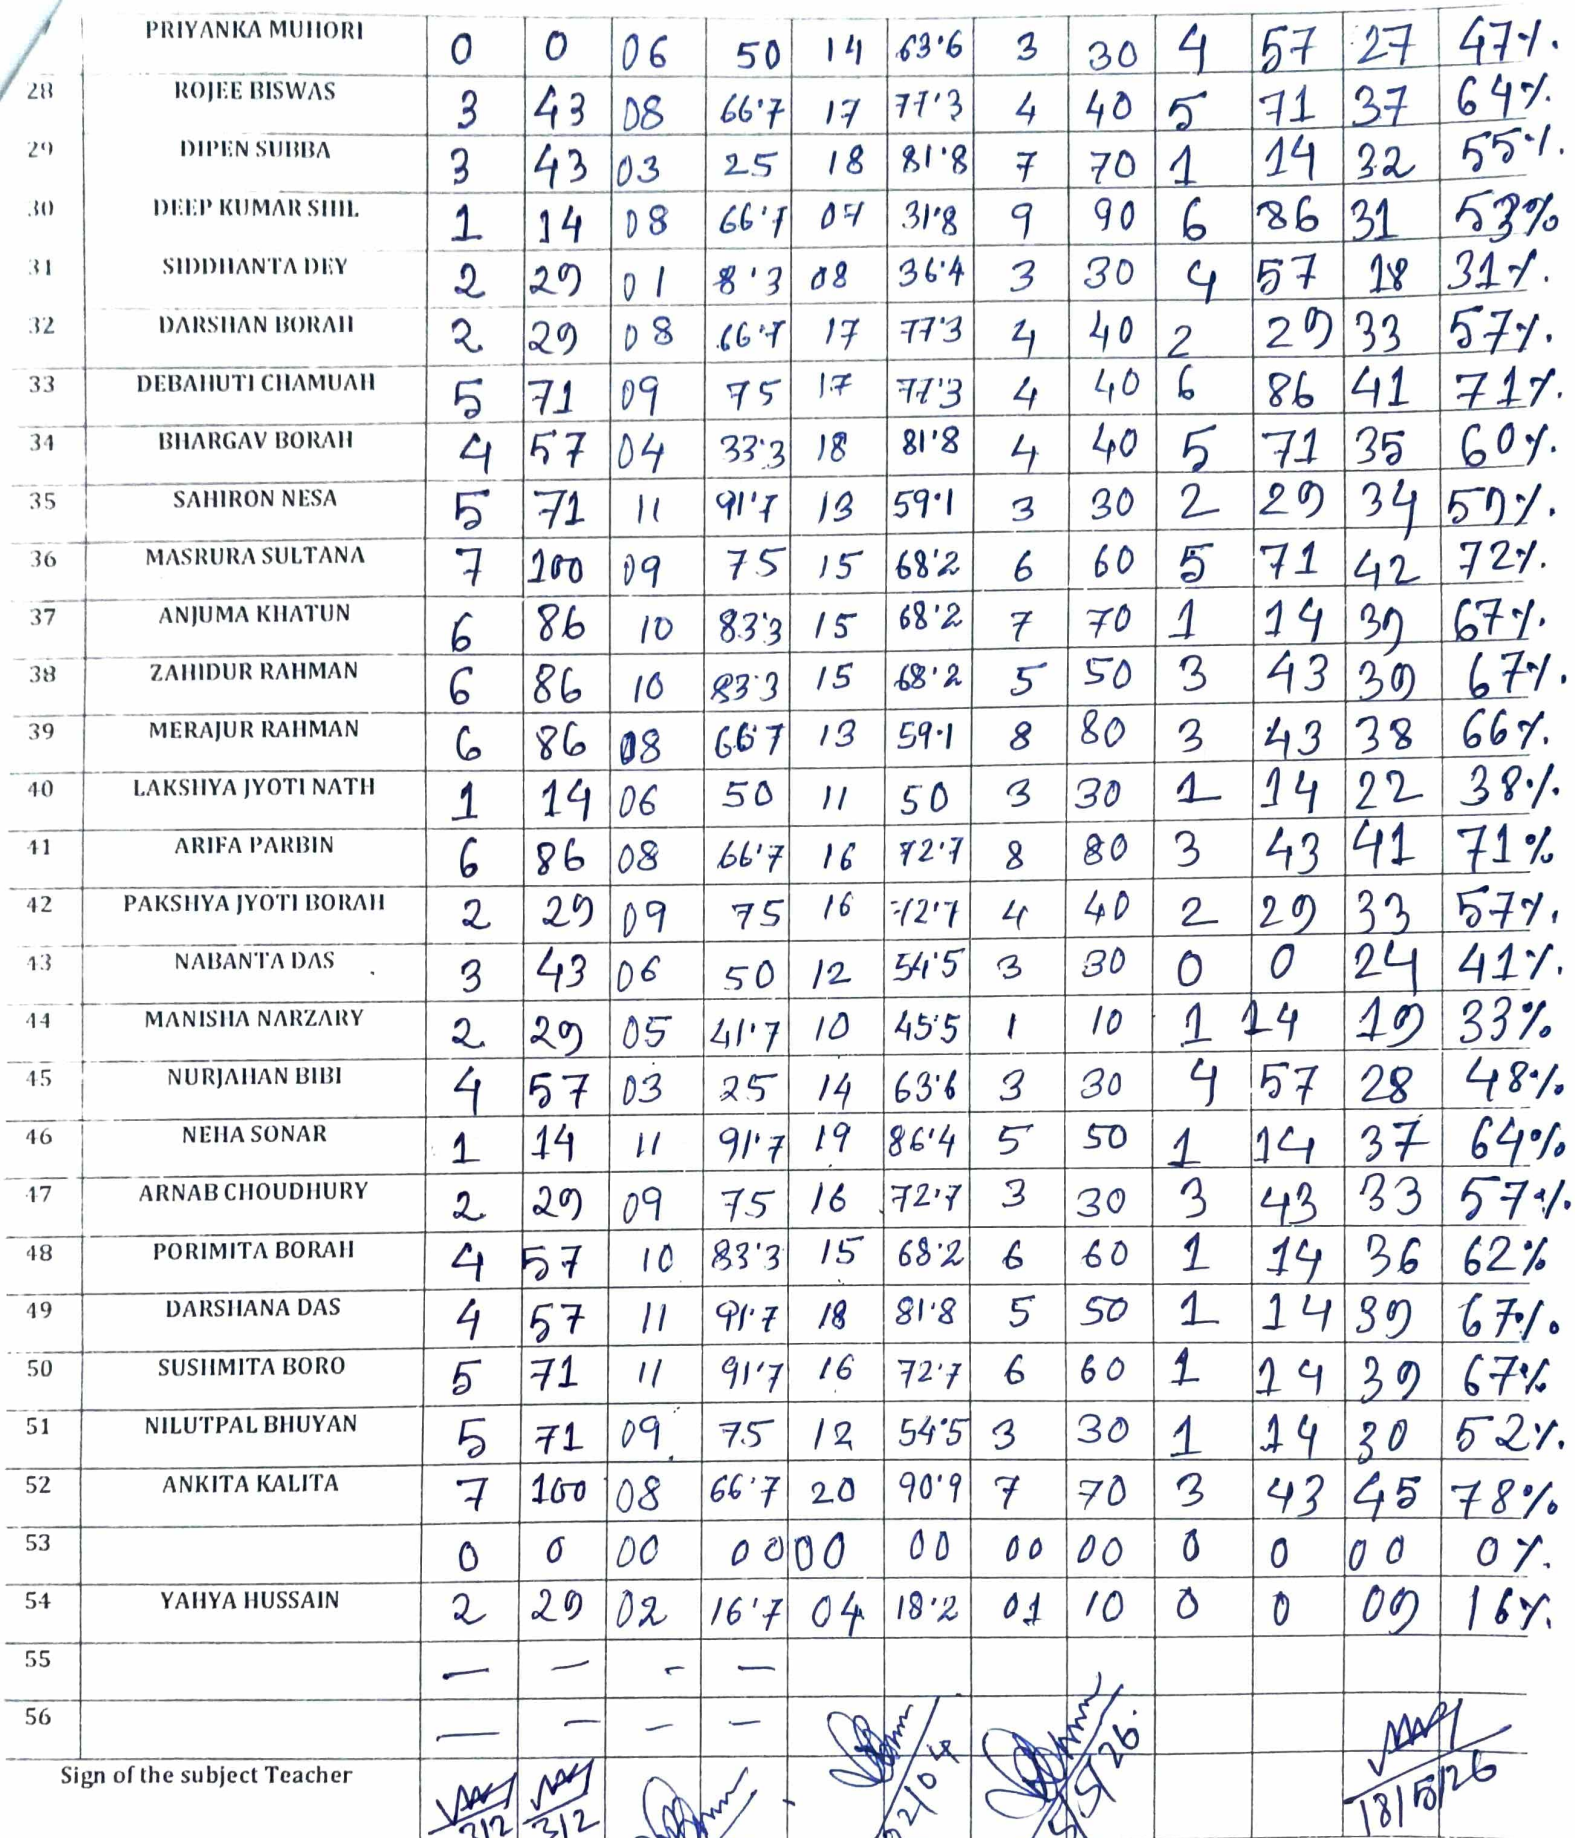 PRIYANKA MUHORI 0 0 06 50 14 63.6 3 30 4 57 27 47%.
28 ROJEE BISWAS 3 43 08 66.7 17 77.3 4 40 5 71 37 64%.
29 DIPEN SUBBA 3 43 03 25 18 81.8 7 70 1 14 32 55%.
30 DEEP KUMAR SHIL 1 14 08 66.7 07 31.8 9 90 6 86 31 53%
31 SIDDHANTA DEY 2 29 01 8.3 08 36.4 3 30 4 57 18 31%.
32 DARSHAN BORAH 2 29 08 66.7 17 77.3 4 40 2 29 33 57%.
33 DEBAHUTI CHAMUAH 5 71 09 75 17 77.3 4 40 6 86 41 71%.
34 BHARGAV BORAH 4 57 04 33.3 18 81.8 4 40 5 71 35 60%.
35 SAHIRON NESA 5 71 11 91.7 13 59.1 3 30 2 29 34 59%.
36 MASRURA SULTANA 7 100 09 75 15 68.2 6 60 5 71 42 72%.
37 ANJUMA KHATUN 6 86 10 83.3 15 68.2 7 70 1 14 39 67%.
38 ZAHIDUR RAHMAN 6 86 10 83.3 15 68.2 5 50 3 43 39 67%.
39 MERAJUR RAHMAN 6 86 08 66.7 13 59.1 8 80 3 43 38 66%.
40 LAKSHYA JYOTI NATH 1 14 06 50 11 50 3 30 1 14 22 38%.
41 ARIFA PARBIN 6 86 08 66.7 16 72.7 8 80 3 43 41 71%
42 PAKSHYA JYOTI BORAH 2 29 09 75 16 72.7 4 40 2 29 33 57%.
43 NABANTA DAS 3 43 06 50 12 54.5 3 30 0 0 24 41%.
44 MANISHA NARZARY 2 29 05 41.7 10 45.5 1 10 1 14 19 33%
45 NURJAHAN BIBI 4 57 03 25 14 63.6 3 30 4 57 28 48%
46 NEHA SONAR 1 14 11 91.7 19 86.4 5 50 1 14 37 64%
47 ARNAB CHOUDHURY 2 29 09 75 16 72.7 3 30 3 43 33 57%.
48 PORIMITA BORAH 4 57 10 83.3 15 68.2 6 60 1 14 36 62%
49 DARSHANA DAS 4 57 11 91.7 18 81.8 5 50 1 14 39 67%
50 SUSHMITA BORO 5 71 11 91.7 16 72.7 6 60 1 14 39 67%
51 NILUTPAL BHUYAN 5 71 09 75 12 54.5 3 30 1 14 30 52%.
52 ANKITA KALITA 7 100 08 66.7 20 90.9 7 70 3 43 45 78%
53 0 0 00 00 00 00 00 00 0 0 00 0%.
54 YAHYA HUSSAIN 2 29 02 16.7 04 18.2 01 10 0 0 09 16%.
55 — — - —
56 — — — —
Sign of the subject Teacher 18/5/26